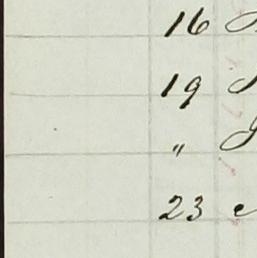 16
19
"
23